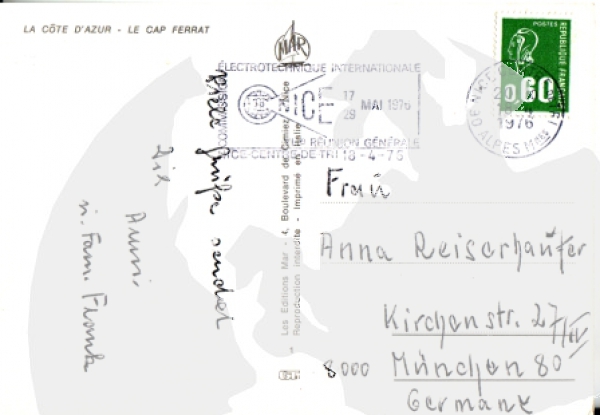 LA CÔTE D'AZUR - LE CAP FERRAT
MAR
ÉLECTROTECHNIQUE INTERNATIONALE
COMMISSION
NICE
17
29 MAI 1976
RÉUNION GÉNÉRALE
NICE CENTRE DE TRI 18-4-75
POSTES
0.60
REPUBLIQUE FRANCAISE
1976
ALPES MMES
Les Editions Mar - 4, Boulevard de Cimiez - Nice
Reproduction interdite - Imprimé en Italie
Viele Grüße sendet
Die
Anni
u. Fam. Frank
Frau
Anna Reiserhaufer
Kirchenstr. 27/IV
8000 München 80
Germany